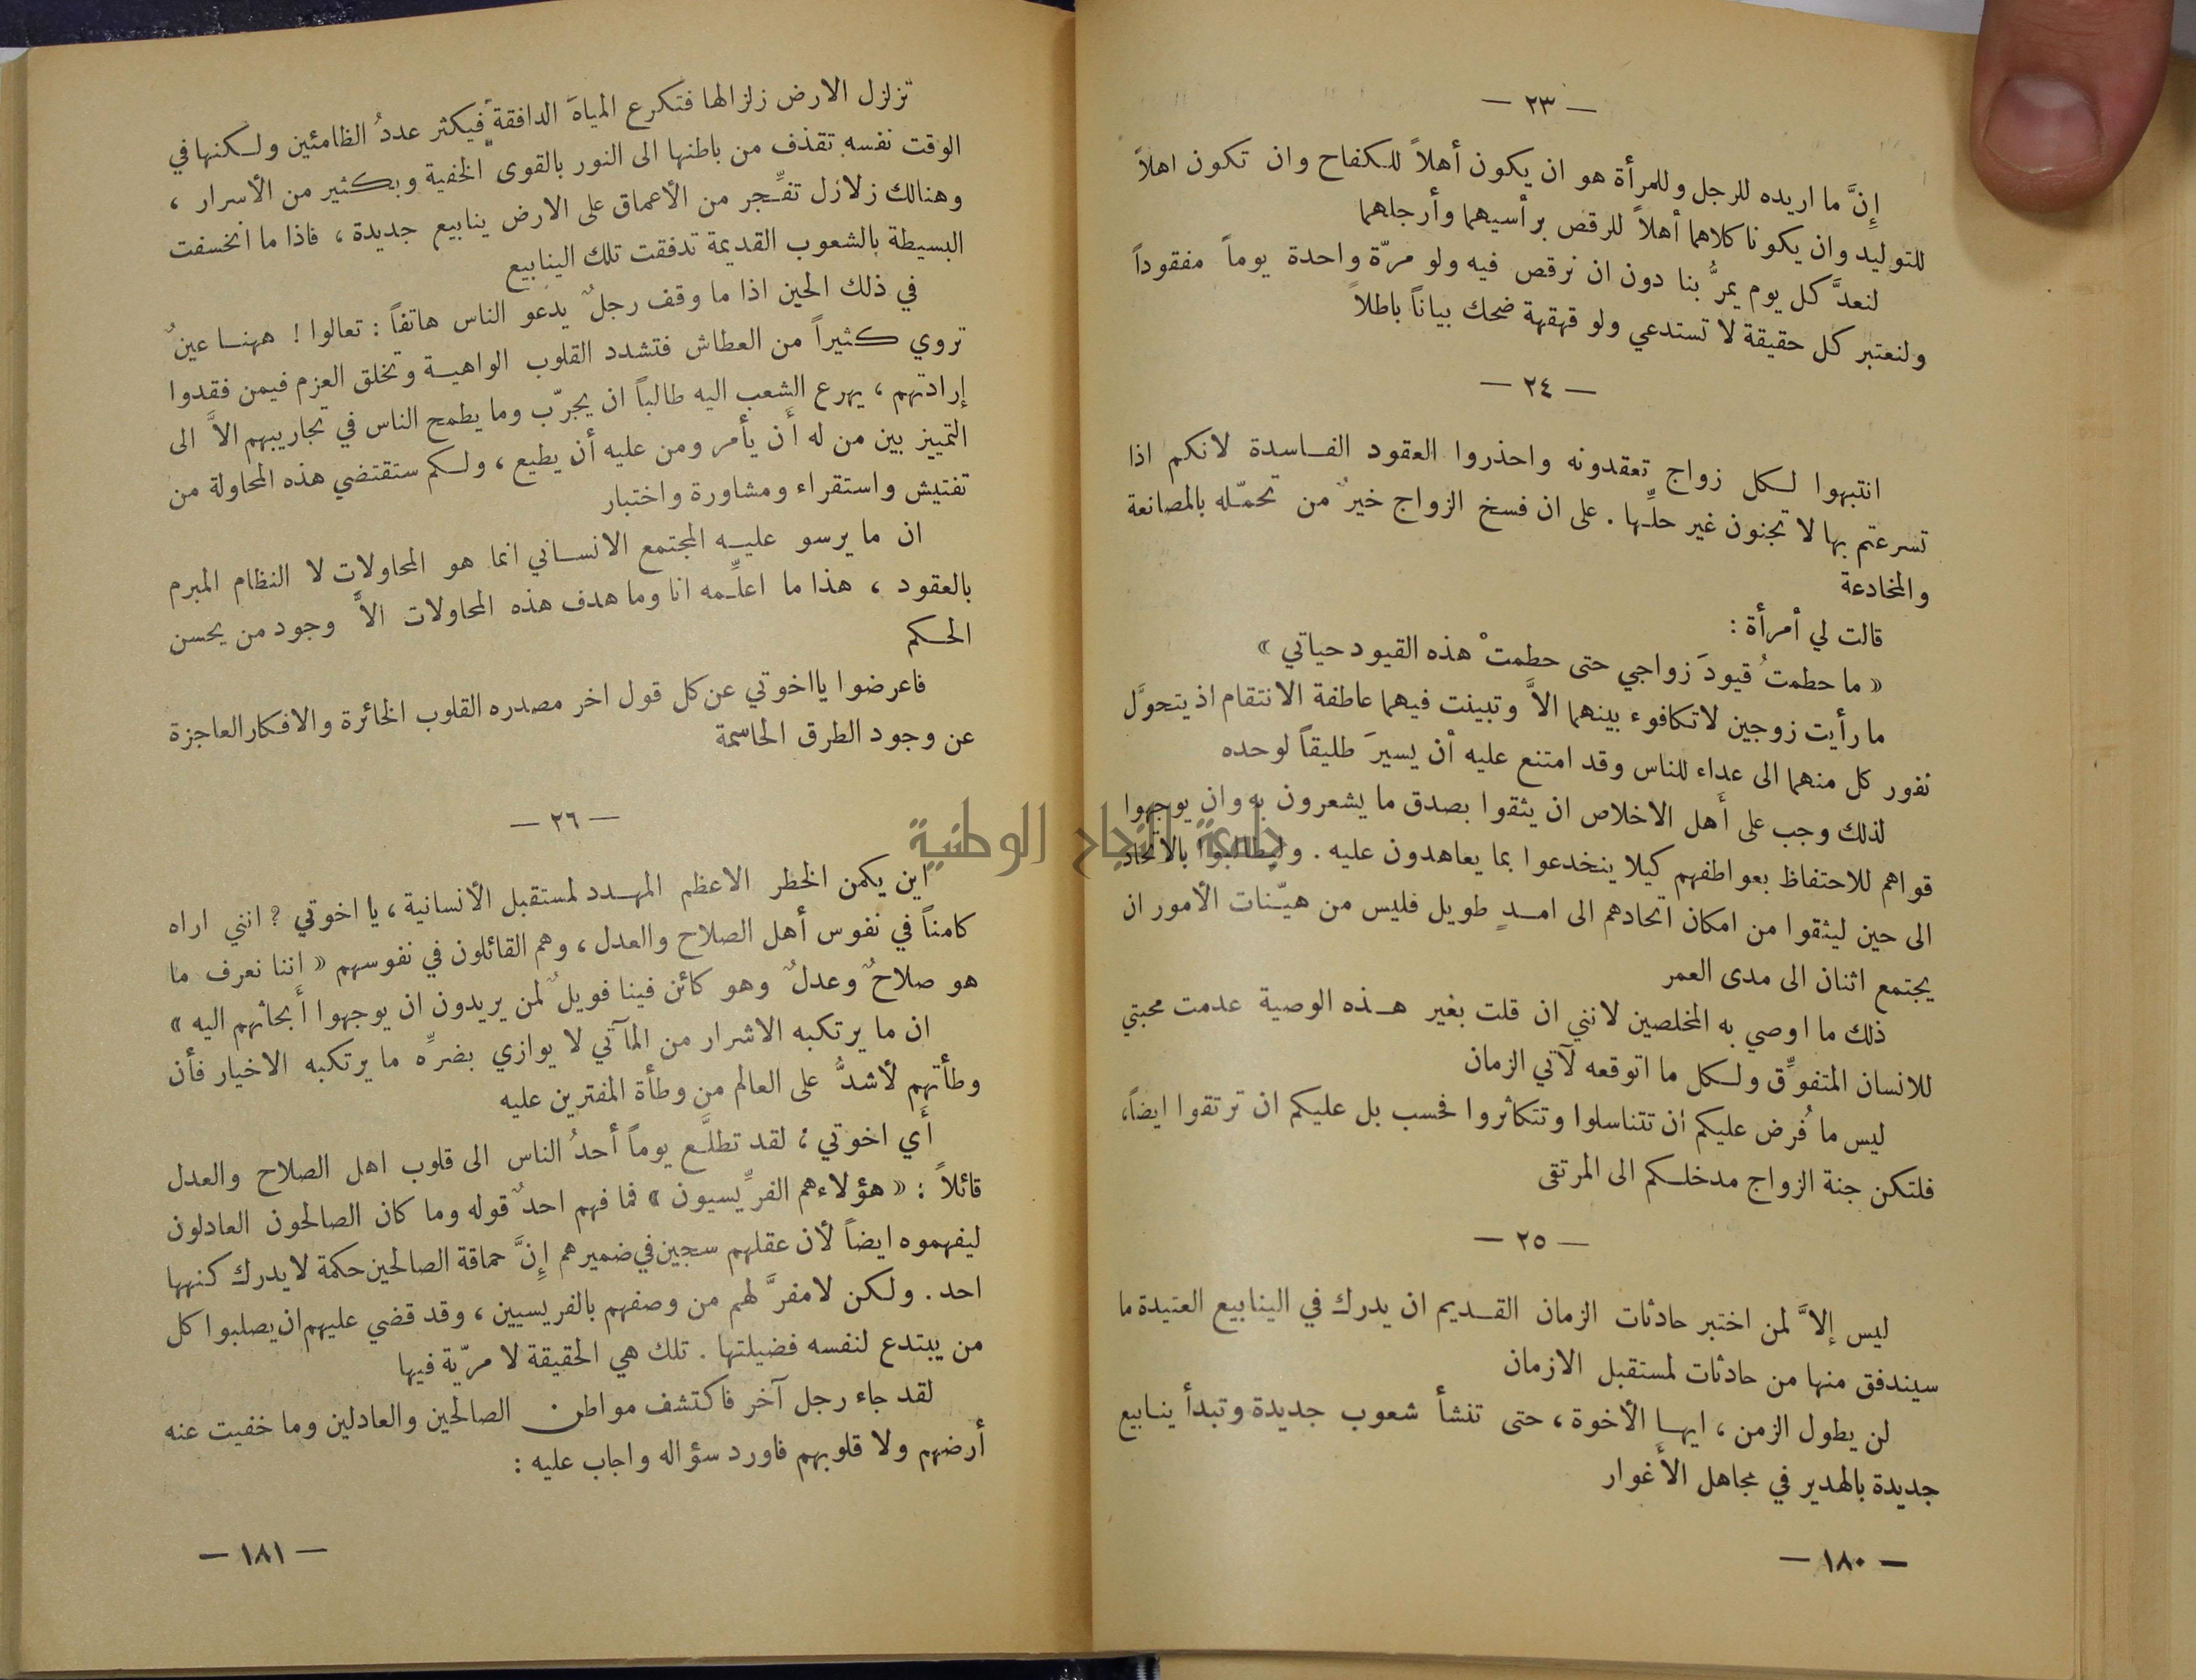 — ٢٣ —
إِنَّ ما اريده للرجل وللمرأة هو ان يكون أهلاً للكفاح وان تكون اهلاً
للتوليد وان يكونا كلاهما أهلاً للرقص برأسيهما وأرجلهما
لنعدَّ كل يوم يمرُّ بنا دون ان نرقص فيه ولو مرّة واحدة يوماً مفقوداً
ولنعتبر كل حقيقة لا تستدعي ولو قهقهة ضحك بياناً باطلاً
— ٢٤ —
انتبهوا لكل زواج تعقدونه واحذروا العقود الفاسدة لانكم اذا
تسرعتم بها لا تجنون غير حلِّها . على ان فسخ الزواج خيرٌ من تحمّله بالمصانعة
والمخادعة
قالت لي أمرأة :
« ما حطمتُ قيودَ زواجي حتى حطمتْ هذه القيود حياتي »
ما رأيت زوجين لا تكافوء بينهما الاَّ وتبينت فيهما عاطفة الانتقام اذ يتحوَّل
نفور كل منهما الى عداء للناس وقد امتنع عليه أن يسيرَ طليقاً لوحده
لذلك وجب على أهل الاخلاص ان يثقوا بصدق ما يشعرون به وان يوجهوا
قواهم للاحتفاظ بعواطفهم كيلا ينخدعوا بما يعاهدون عليه . وليطالبوا بالاتحاد
الى حين ليثقوا من امكان اتحادهم الى امدٍ طويل فليس من هيّنات الأمور ان
يجتمع اثنان الى مدى العمر
ذلك ما اوصي به المخلصين لانني ان قلت بغير هذه الوصية عدمت محبتي
للانسان المتفوِّق ولكل ما اتوقعه لآتي الزمان
ليس ما فُرض عليكم أن تتناسلوا وتتكاثروا فحسب بل عليكم ان ترتقوا ايضاً،
فلتكن جنة الزواج مدخلكم الى المرتقى
— ٢٥ —
ليس إلاَّ لمن اختبر حادثات الزمان القديم ان يدرك في الينابيع العتيدة ما
سيندفق منها من حادثات لمستقبل الازمان
لن يطول الزمن ، ايها الأخوة ، حتى تنشأ شعوب جديدة وتبدأ ينابيع
جديدة بالهدير في مجاهل الأغوار
— ١٨٠ —
تزلزل الارض زلزالها فتكرع المياهَ الدافقةَ فيكثر عددُ الظامئين ولكنها في
الوقت نفسه تقذف من باطنها الى النور بالقوى الخفية وبكثير من الأسرار ،
وهنالك زلازل تفِّجر من الأعماق على الارض ينابيع جديدة ، فاذا ما انخسفت
البسيطة بالشعوب القديمة تدفقت تلك الينابيع
في ذلك الحين اذا ما وقف رجلٌ يدعو الناس هاتفاً : تعالوا ! ههنا عينٌ
تروي كثيراً من العطاش فتشدد القلوب الواهية وتخلق العزم فيمن فقدوا
إرادتهم ، يهرع الشعب اليه طالباً ان يجرّب وما يطمح الناس في تجاريبهم الاَّ الى
التمييز بين من له أن يأمر ومن عليه أن يطيع ، ولكم ستقتضي هذه المحاولة من
تفتيش واستقراء ومشاورة واختبار
ان ما يرسو عليه المجتمع الانساني انما هو المحاولات لا النظام المبرم
بالعقود ، هذا ما اعلِّمه انا وما هدف هذه المحاولات الاَّ وجود من يحسن
الحكم
فاعرضوا يااخوتي عن كل قول اخر مصدره القلوب الخائرة والافكار العاجزة
عن وجود الطرق الحاسمة
— ٢٦ —
اين يكمن الخطر الاعظم المهدد لمستقبل الأنسانية ، يا اخوتي ؟ انني اراه
كامناً في نفوس أهل الصلاح والعدل ، وهم القائلون في نفوسهم « اننا نعرف ما
هو صلاحٌ وعدلٌ وهو كائن فينا فويلٌ لمن يريدون ان يوجهوا أبحاثهم اليه »
ان ما يرتكبه الاشرار من المآتي لا يوازي بضرِّه ما يرتكبه الاخيار فأن
وطأتهم لأشدُّ على العالم من وطأة المفترين عليه
أي اخوتي ، لقد تطلَّع يوماً أحدُ الناس الى قلوب اهل الصلاح والعدل
قائلاً : « هؤلاء هم الفرِّيسيون » فما فهم احدٌ قوله وما كان الصالحون العادلون
ليفهموه ايضاً لأن عقلهم سجين في ضميرهم إِنَّ حماقة الصالحين حكمة لا يدرك كنهها
احد . ولكن لا مفرَّ لهم من وصفهم بالفريسيين ، وقد قضي عليهم ان يصلبوا كل
من يبتدع لنفسه فضيلتها . تلك هي الحقيقة لا مرّية فيها
لقد جاء رجل آخر فاكتشف مواطن الصالحين والعادلين وما خفيت عنه
أرضهم ولا قلوبهم فاورد سؤاله واجاب عليه :
— ١٨١ —
جامعة النجاح الوطنية